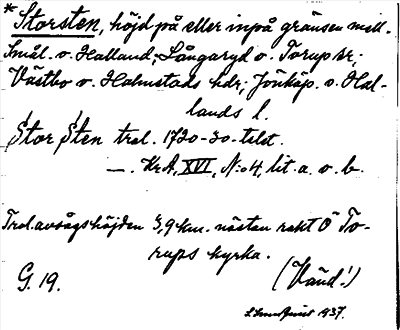 * Storsten, höjd på eller inpå gränsen mell.
Smål. o. Halland; Långaryd o. Torup sr;
Västbo o. Halmstads hdr; Jönköp. o. Hal-
lands l.
Stor Sten trol. 1720-30-talet.
—. KrA, XVI, N:o 4, lit. a. o. b.
Trol. avsågs höjden 3,9 km. nästan rakt Ö To-
rups kyrka.
G. 19.
(Vänd!)
1937.